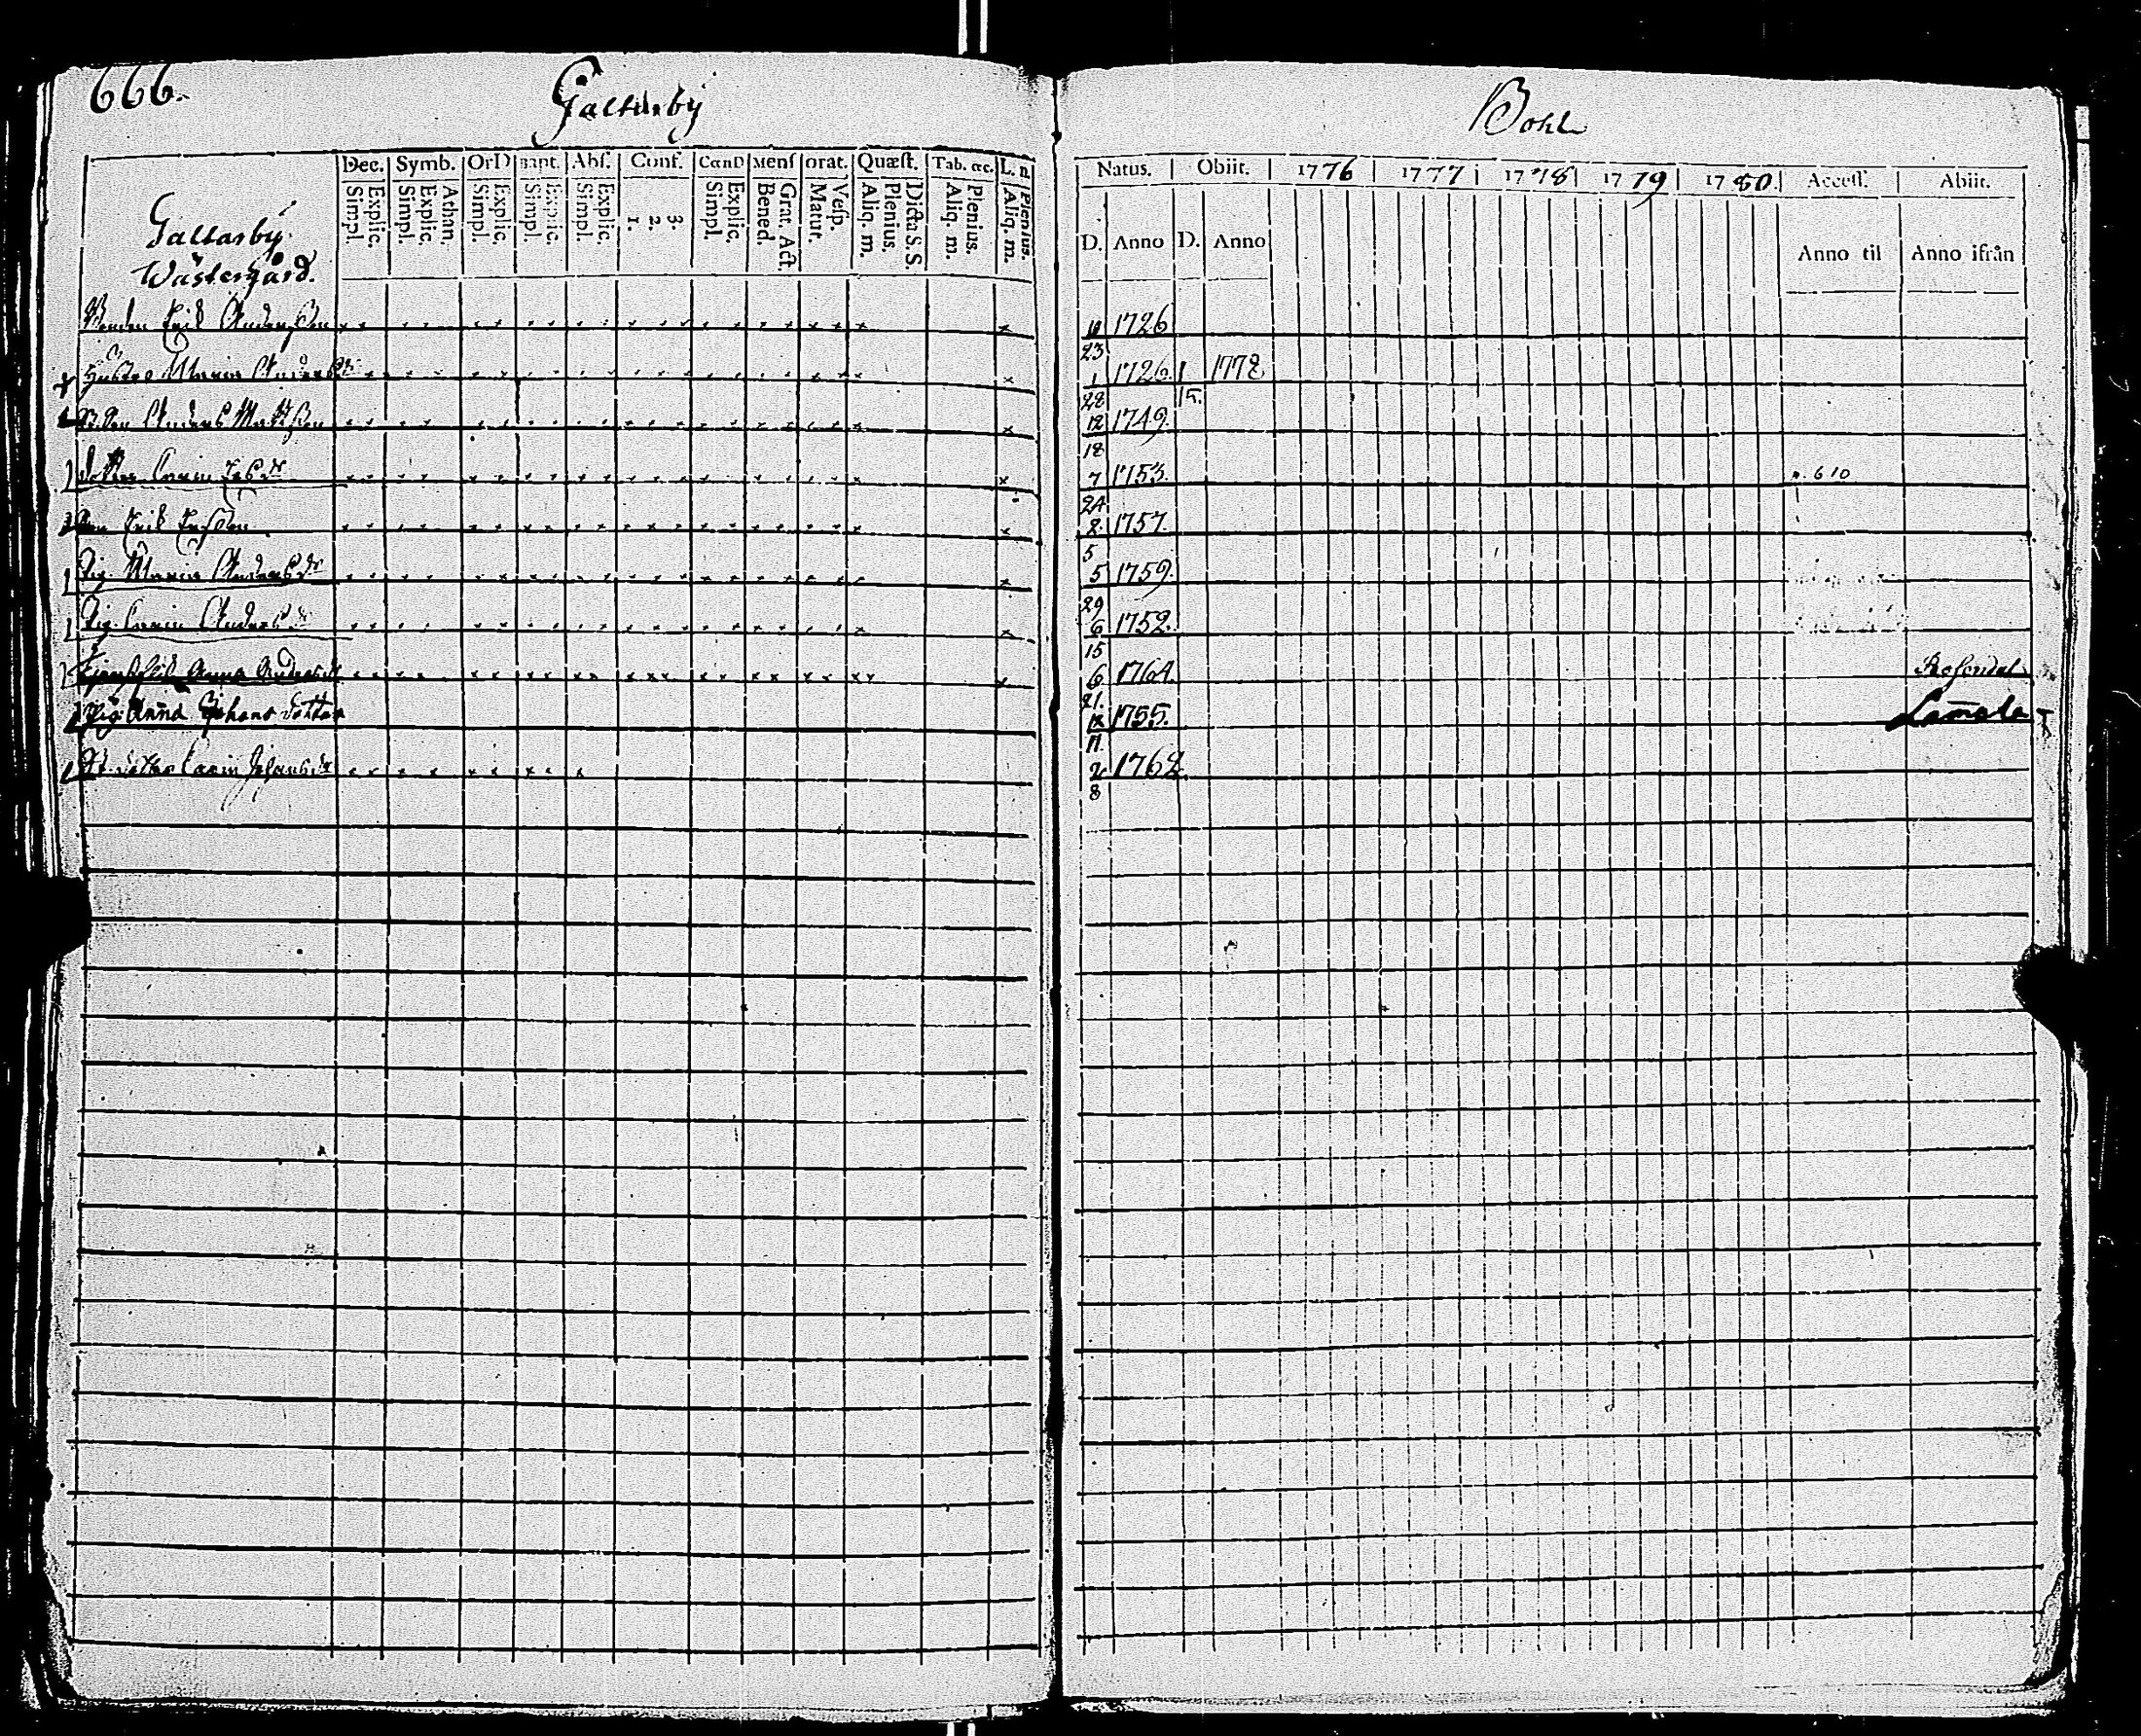 666.
Galtarby
Bohl
Dec. Symb. OrD Bapt. Abs. Conf. CœnD Mens Orat. Quæst. Tab. œc. L. n.
Simpl. Explic. Simpl. Explic. Athan. Simpl. Explic. Simpl. Explic. Simpl. Explic. 1. 2. 3. Simpl. Explic. Bened. Grat. Act. Matut. Vesp. Aliq. m. Plenius. Dicta S. S. Aliq. m. Plenius. Aliq. m. Plenius.
Natus. Obiit. 1776 1777 1778 1779 1780. Access. Abiit.
D. Anno D. Anno Anno til Anno ifrån
Galtarby
Wästergård.
Bonden Erik Andersson 10 1726
23
Hustru Maria Andersdr 1 1726. 1 1778
28 15.
Anders Matsson 12 1749.
18
Dotter Carin Ersdr 7 1753. p. 610
24
Son Erik Ersson 2 1757.
5
Pig. Maria Andersdr 5 1759.
29
Pig. Carin Andersdr 6 1752.
15
Anna Andersdr 6 1764. Rosendal
21.
Pig. Anna Johans Dotter 12 1755. Lamala
17.
Dotter Carin Johansdr 2 1762
8